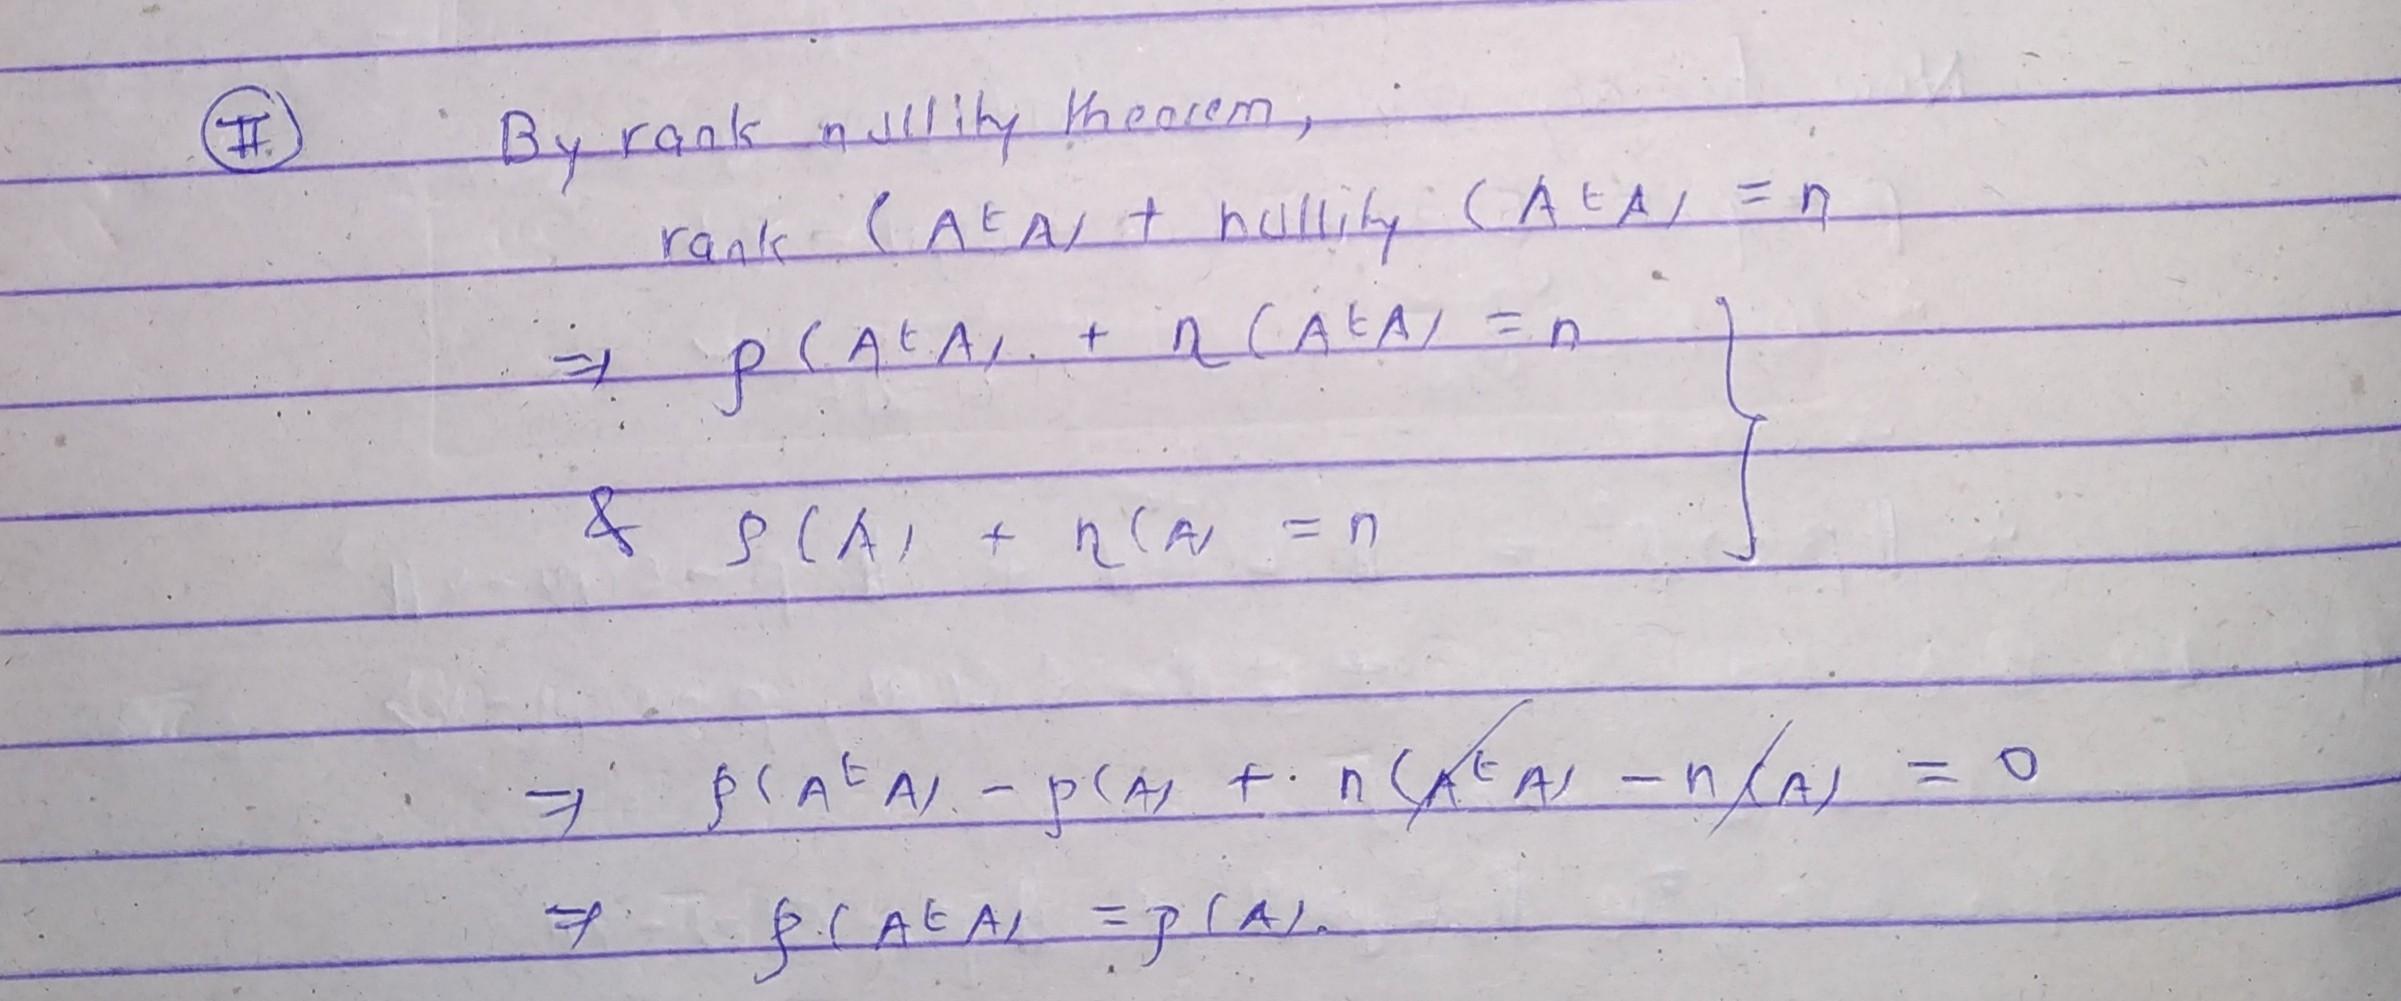 II By rank nullity theorem,
rank (AᵗA) + nullity (AᵗA) = n
⇒ ρ(AᵗA) + η(AᵗA) = n
& ρ(A) + η(A) = n
⇒ ρ(AᵗA) - ρ(A) + n(AᵗA) - n(A) = 0
⇒ ρ(AᵗA) = ρ(A).